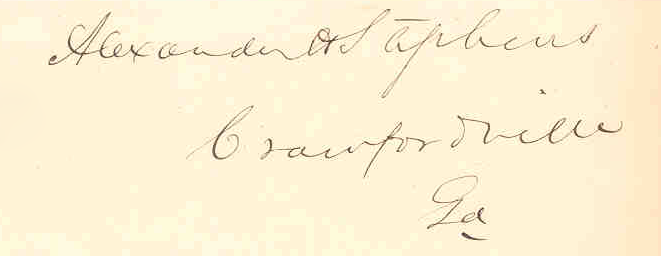 Alexander H Stephens
Crawfordville
Ga